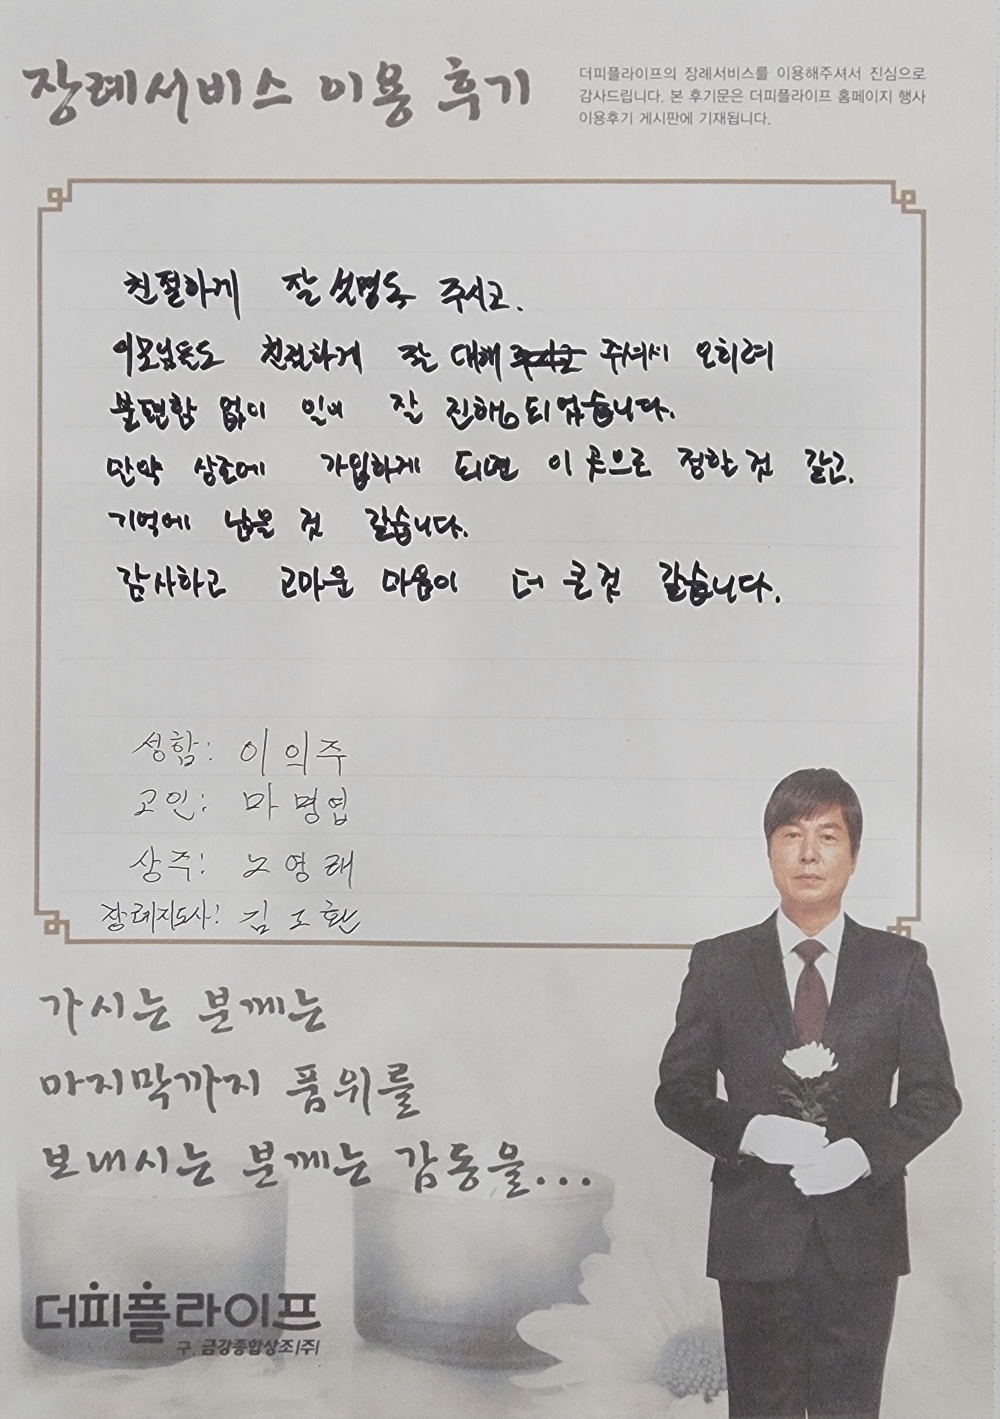 장례서비스 이용 후기
더피플라이프의 장례서비스를 이용해주셔서 진심으로
감사드립니다. 본 후기문은 더피플라이프 홈페이지 행사
이용후기 게시판에 기재됩니다.
친절하게 잘 설명도 주시고.
이모님들도 친절하게 잘 대해 주셔서 오히려
불편함 없이 일이 잘 진행되었습니다.
만약 상조에 가입하게 되면 이 곳으로 정한 것 같고.
기억에 남을 것 같습니다.
감사하고 고마운 마음이 더 큰것 같습니다.
성함: 이의주
고인: 마명엽
상주: 노영래
장례지도사: 김도환
가시는 분께는
마지막까지 품위를
보내시는 분께는 감동을...
더피플라이프
구. 금강종합상조(주)